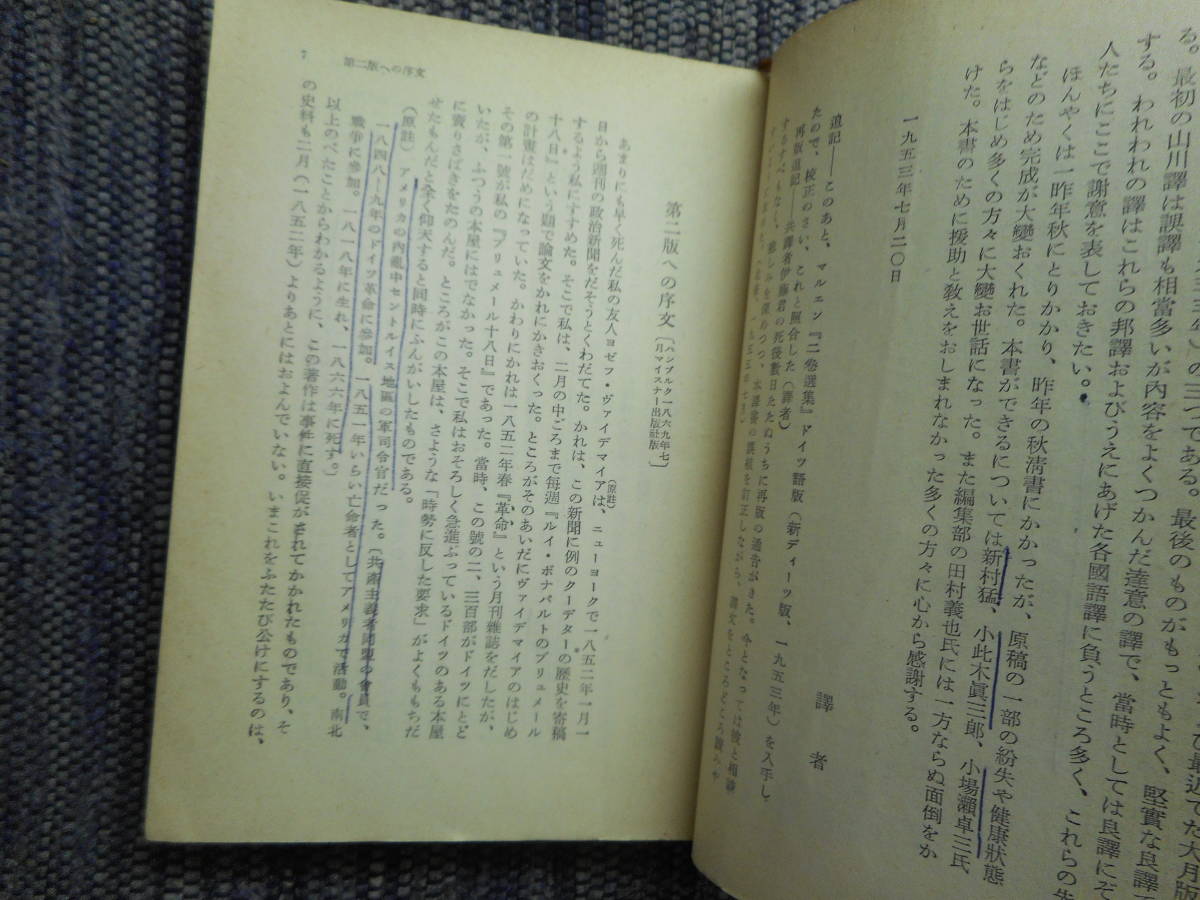 る。最初の山川譯は誤譯も相當多いが内容をよくつかんだ達意の譯で、當時としては良譯にぞ
する。われわれの譯はこれらの邦譯およびうえにあげた各國語譯に負うところ多く、これらの先
人たちにここで謝意を表しておきたい。
ほんやくは一昨年秋にとりかかり、昨年の秋清書にかかったが、原稿の一部の紛失や健康狀態
などのため完成が大變おくれた。本書ができるについては新村猛、小此木眞三郎、小場瀨卓三氏
らをはじめ多くの方々に大變お世話になった。また編集部の田村義也氏には一方ならぬ面倒をか
けた。本書のために援助と敎えをおしまれなかった多くの方々に心から感謝する。
一九五三年七月二〇日
譯者
追記——このあと、マルエン『二卷選集』ドイツ語版(新ディーツ版、一九五三年)を入手し
たので、校正のさい、これと照合した(譯者)
再版追記——共譯者伊藤君の死後數日たたぬうちに再版の通告がきた。今となっては彼と相談
するすべもなく、悲しみを深めつつ、本譯書の誤植を訂正しながら、譯文をところどころ
第二版への序文〔ハンブルク一八六九年七月マイスナー出版社版〕
あまりにも早く死んだ私の友人ヨゼフ・ヴァイデマイアは、(原註)ニューヨークで一八五二年一月一
日から週刊の政治新聞をだそうとくわだてた。かれは、この新聞に例のクーデターの歷史を寄稿
するよう私にすすめた。そこで私は、二月の中ごろまで每週『ルイ・ボナパルトのブリュメール
十八日』という題で論文をかれにかきおくった。ところがそのあいだにヴァイデマイアのはじめ
の計畫はだめになっていた。かわりにかれは一八五二年春『革命』という月刊雜誌をだしたが、
その第一號が私の『ブリュメール十八日』であった。當時、この號の二、三百部がドイツにとど
いたが、ふつうの本屋にはでなかった。そこで私はおそろしく急進ぶっているドイツのある本屋
に賣りさばきをたのんだ。ところがこの本屋は、さような「時勢に反した要求」がよくもちだ
せたもんだと全く仰天すると同時にふんがいしたものである。
(原註) アメリカの内亂中セントルイス地區の軍司令官だった。〔共產主義者同盟の會員で、
一八四八—九年のドイツ革命に參加。一八五一年いらい亡命者としてアメリカで活動。南北
戰爭に參加。一八一八年に生れ、一八六六年に死す。〕
以上のべたことからわかるように、この著作は事件に直接促がされてかかれたものであり、そ
の史料も二月(一八五二年)よりあとにはおよんでいない。いまこれをふたたび公けにするのは、
7 第二版への序文